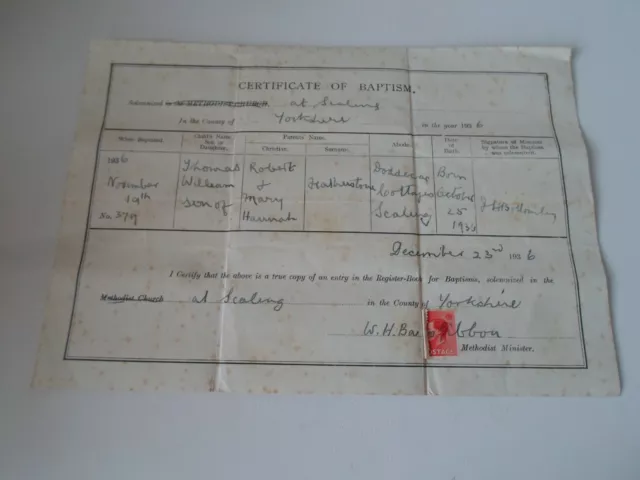 CERTIFICATE OF BAPTISM.
Solemnized in the METHODIST CHURCH, at Scaling
In the County of Yorkshire in the year 1936
When Baptized. Child's Name Son or Daughter. Parents' Name. Abode. Date of Birth. Signature of Minister by whom the Baptism was solemnized.
Christian. Surname.
1936 Thomas Robert Born
November William & Featherstone Cottages October
19th son of Mary Scaling 25
No. 379 Hannah 1936
December 23rd 1936
I Certify that the above is a true copy of an entry in the Register-Book for Baptisms, solemnized in the
Methodist Church at Scaling in the County of Yorkshire
W. H.
Methodist Minister.